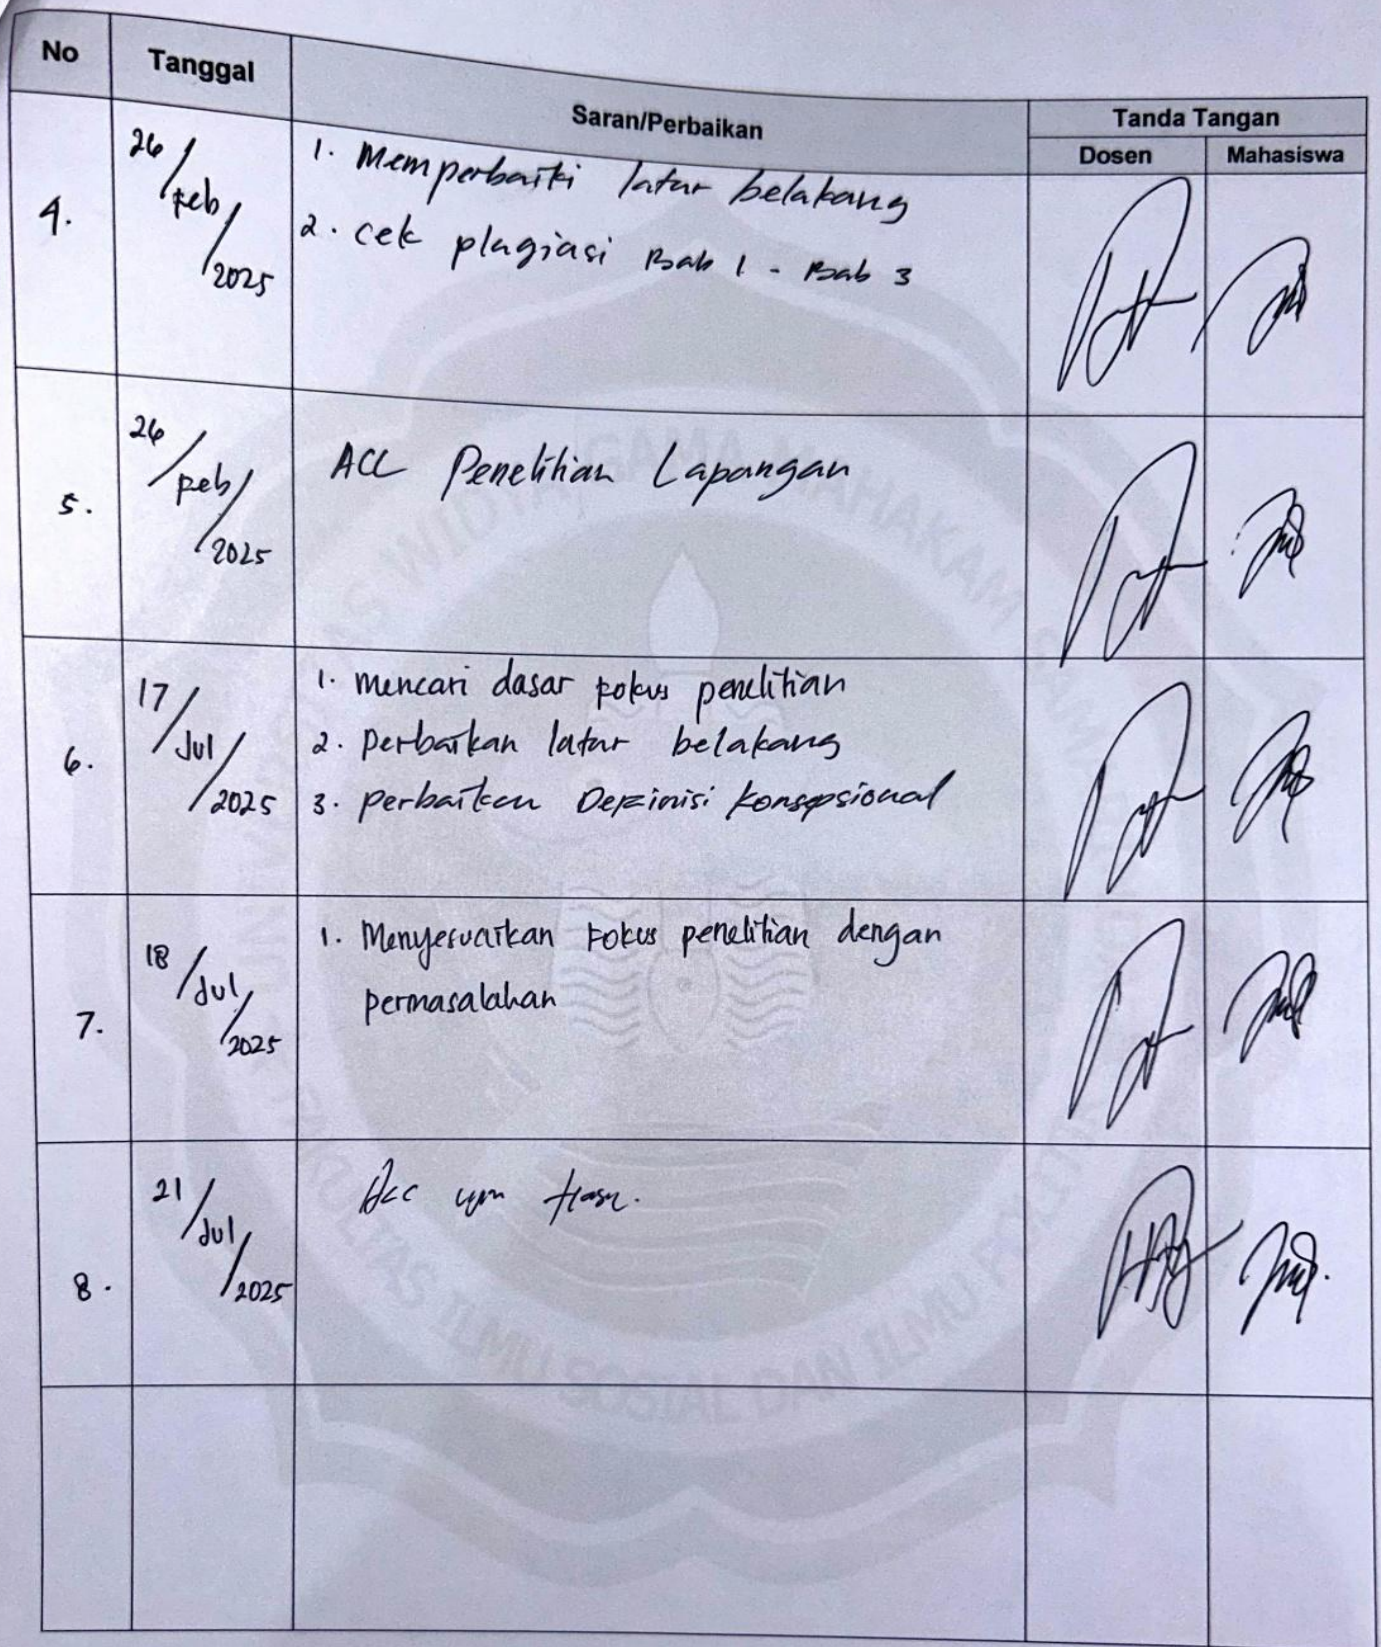 No Tanggal Saran/Perbaikan Tanda Tangan
Dosen Mahasiswa
4. 26/Feb/2025 1. Memperbaiki latar belakang
2. cek plagiasi Bab 1 - Bab 3
5. 26/Feb/2025 ACC Penelitian Lapangan
6. 17/Jul/2025 1. mencari dasar Fokus penelitian
2. perbaikan latar belakang
3. perbaikan Definisi konsepsional
7. 18/Jul/2025 1. Menyesuaikan Fokus penelitian dengan
permasalahan
8. 21/Jul/2025 Acc
WIDYA GAMA MAHAKAM
FAKULTAS ILMU SOSIAL DAN ILMU POLITIK